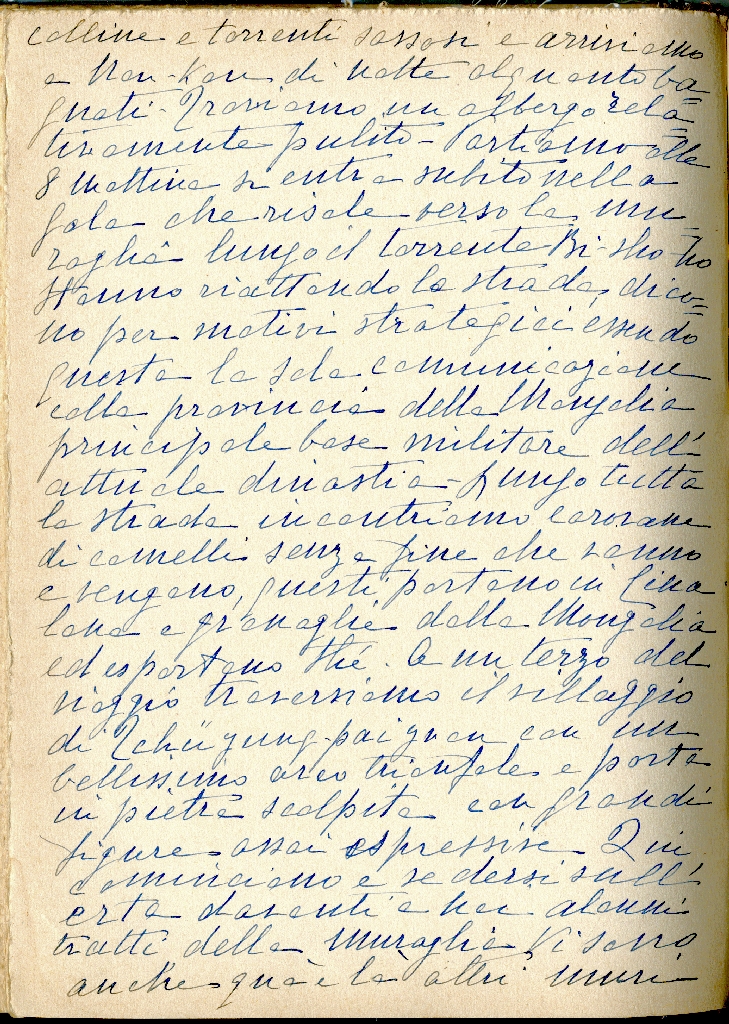 colline e torrenti sassosi e arriviamo
a Nan-Kou di notte alquanto ba=
gnati. Troviamo un albergo rela=
tivamente pulito - Partiamo alle
8 mattina si entra subito nella
gola che risale verso la mu=
raglia lungo il torrente Bi-sho-ho
stanno riattando la strada, dico=
no per motivi strategici essendo
questa la sola comunicazione
colla provincia della Mongolia
principale base militare dell'
attuale dinastia - Lungo tutta
la strada incontriamo carovane
di camelli senza fine che vanno
e vengono, questi portano in Cina
lana e granaglie dalla Mongolia
ed esportano thé. A un terzo del
viaggio traversiamo il villaggio
di Tchü yung-pai gnan con un
bellissimo arco trionfale e porta
in pietra scolpita con grandi
figure assai espressive. Qui
cominciano a vedersi sull'
erta davanti a noi alcuni
tratti della Muraglia. Vi sono
anche quà e là altri muri